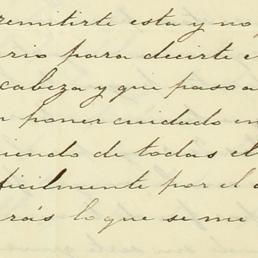 remitirte esta y no
rio para decirte e
cabeza y que paso a
n poner cuidado en
iendo de todas el
ficilmente por el
rás lo que se me